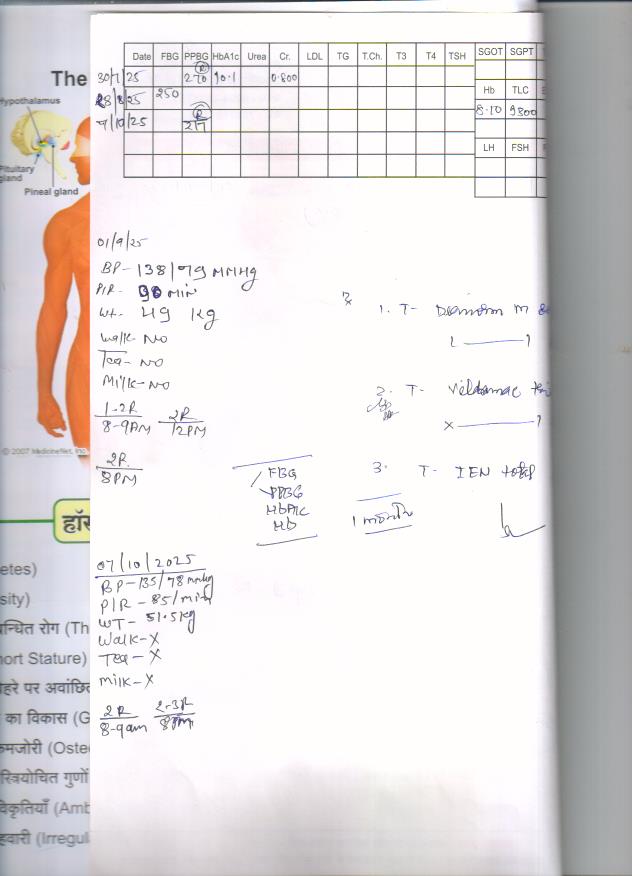 Date FBG PPBG HbA1c Urea Cr. LDL TG T.Ch. T3 T4 TSH SGOT SGPT
30/7/25 270 (R) 10.1 0.800
28/8/25 250
Hb TLC
8.10 9800
7/10/25 (R) 217
LH FSH
The
Hypothalamus
Pituitary
gland
Pineal gland
01/9/25
BP- 138/79 MMHg
P/R- 90 MIN
Wt- 49 Kg
Walk- NO
Tea- NO
Milk- NO
1-2R 2R
8-9AM 12PM
2R
8PM
1. T-
2. T-
x
3. T-
FBG
PPBG
HbA1c
Hb
1 month
© 2007 MedicineNet, Inc.
हॉर्
07/10/2025
BP- 135/78 mmHg
P/R - 85/min
WT - 51.5kg
Walk-X
Tea - X
Milk-X
2R 2-3R
8-9am 8PM
etes)
sity)
न्धित रोग (Th
hort Stature)
हरे पर अवांछित
का विकास (G
मजोरी (Oste
स्त्रियोचित गुणों
वेकृतियाँ (Amb
हवारी (Irregul